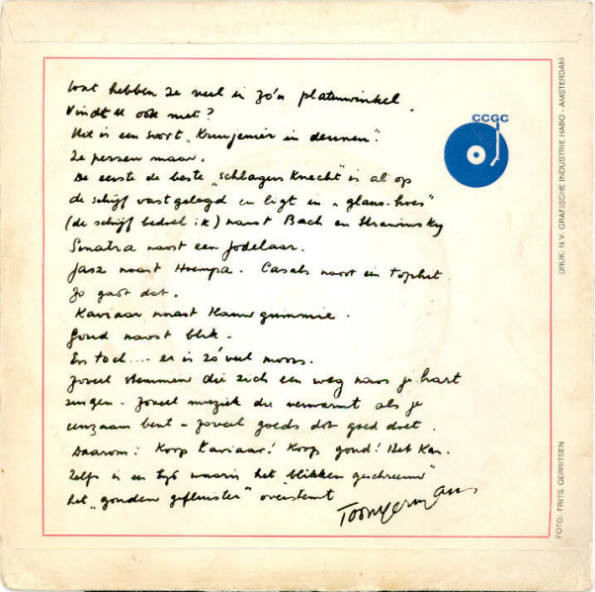 Wat hebben ze veel in zo'n platenwinkel.
Vindt U ook niet?
Het is een soort „Kruijenier in deunen".
Ze persen maar.
De eerste de beste „schlagers knecht" is al op
de schijf vastgelegd en ligt in „glans-hoes"
(de schijf bedoel ik) naast Bach en Strawinsky
Sinatra naast een Jodelaar.
Jazz naast Hoempa. Casals naast een tophit.
Zo gaat dat.
Kaviaar naast Kauwgummie.
Goud naast blik.
En toch.... er is zó veel moois.
Zoveel stemmen die zich een weg naar je hart
zingen - Zoveel muziek die verwarmt als je
eenzaam bent - zoveel goeds dat goed doet.
Daarom: Koop Kaviaar! Koop goud! Het Kan.
Zelfs in een tijd waarin het "blikken geschreeuw"
het „gouden gefluister" overstemt
Toon Hermans
CCGC
DRUK: N.V. GRAFISCHE INDUSTRIE HABO - AMSTERDAM
FOTO: FRITS GERRITSEN